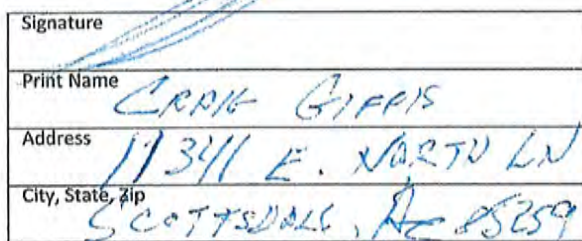 Signature
Print Name CRAIG GIFFIS
Address 11341 E. NORTH LN
City, State, Zip SCOTTSDALE, AZ 85259